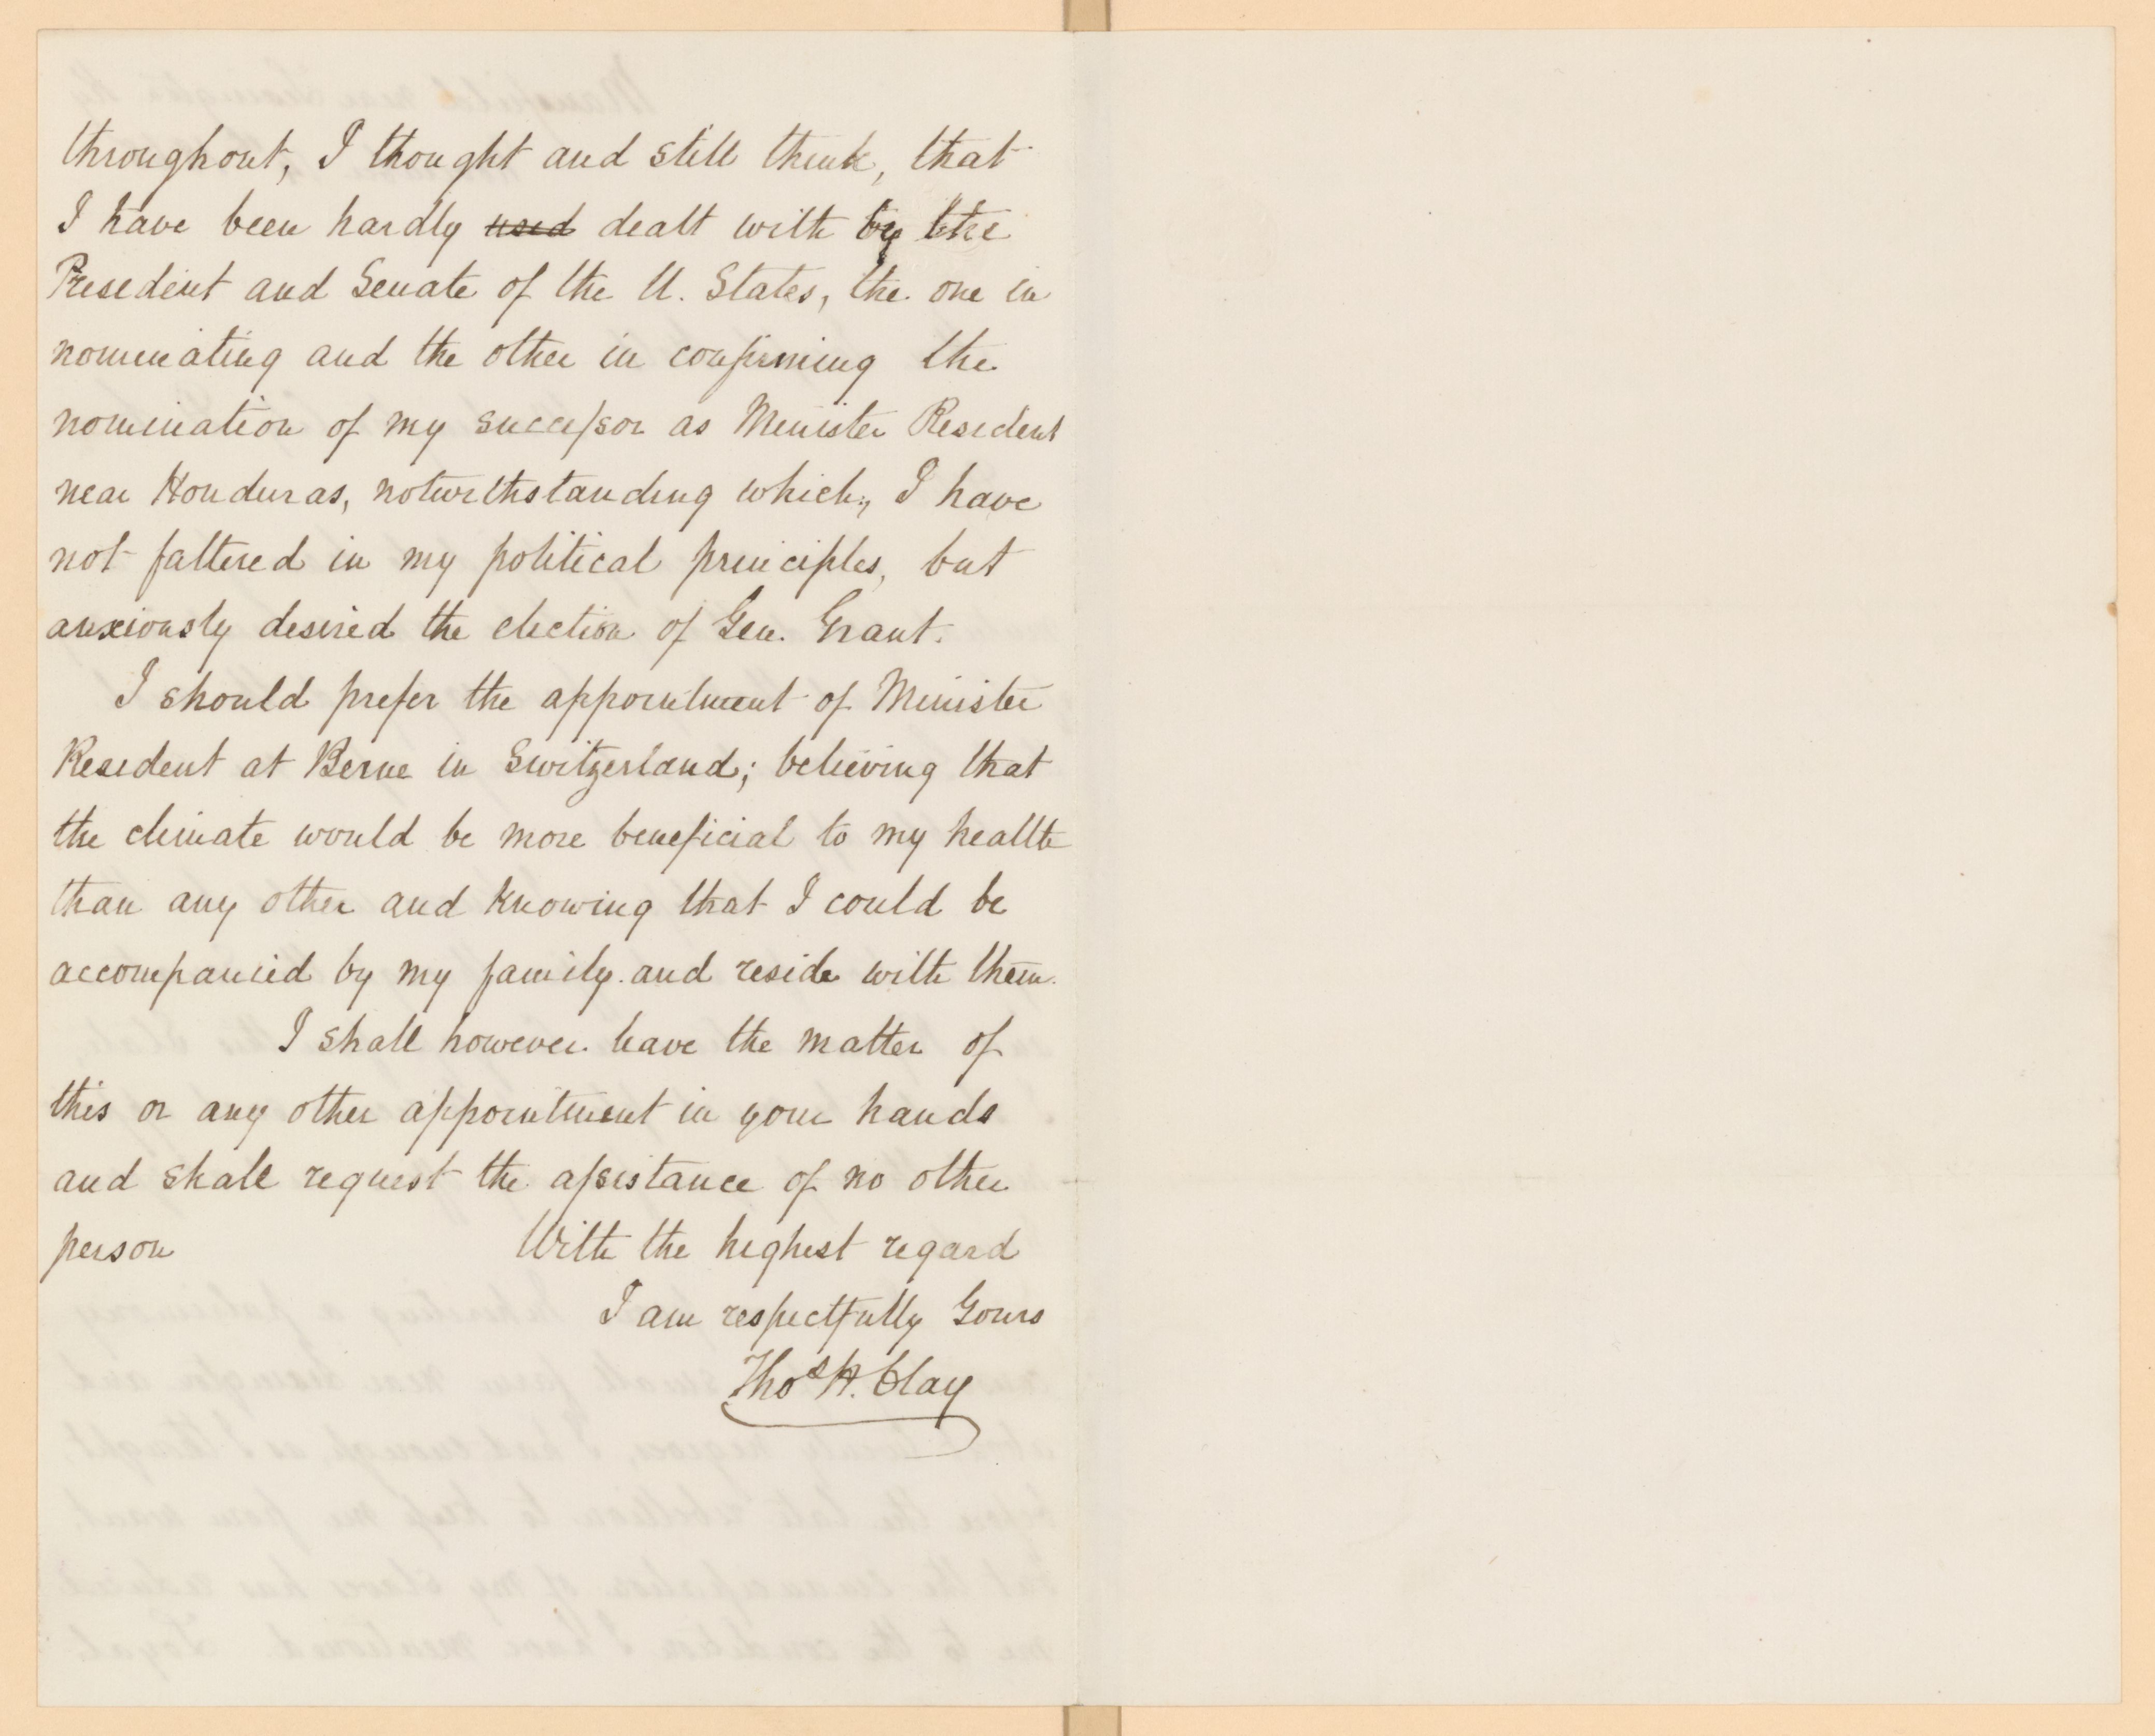 throughout, I thought and still think, that
I have been hardly used dealt with by the
President and Senate of the U. States, the one in
nominating and the other in confirming the
nomination of my successor as Minister Resident
near Honduras, notwithstanding which, I have
not faltered in my political principles, but
anxiously desired the election of Gen. Grant.
I should prefer the appointment of Minister
Resident at Berne in Switzerland; believing that
the climate would be more beneficial to my health
than any other and knowing that I could be
accompanied by my family and reside with them.
I shall however leave the matter of
this or any other appointment in your hands
and shall request the assistance of no other
person With the highest regard
I am respectfully Yours
Thos H. Clay